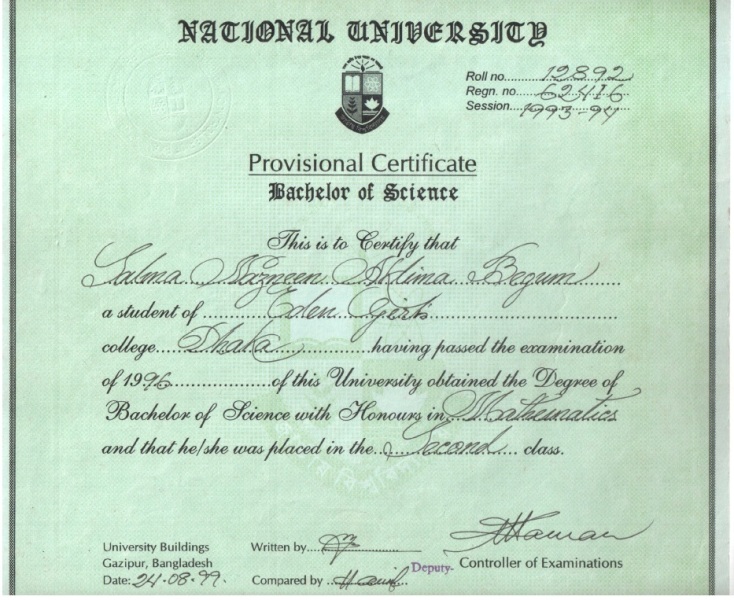 NATIONAL UNIVERSITY
Roll no. 12892
Regn. no. 62416
Session. 1993-94
Provisional Certificate
Bachelor of Science
This is to Certify that
Salma Nazneen Begum
a student of Eden Girls
college Dhaka having passed the examination
of 1996 of this University obtained the Degree of
Bachelor of Science with Honours in Mathematics
and that he/she was placed in the Second class.
University Buildings
Gazipur, Bangladesh
Date: 24-08-99.
Written by
Compared by
Deputy- Controller of Examinations